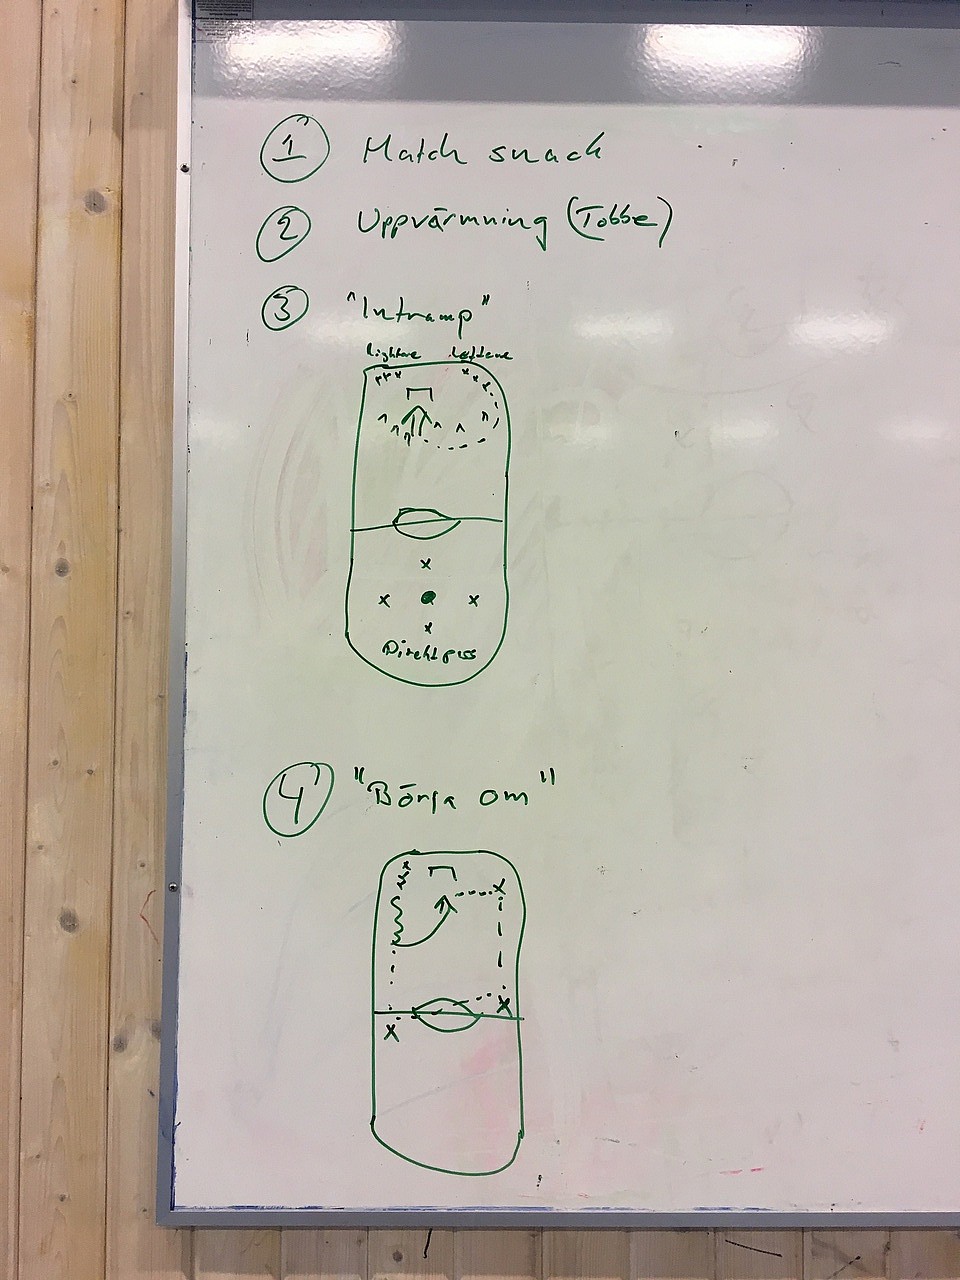 1 Match snack
2 Uppvärmning (Tobbe)
3 "Intramp"
Leftare
Direktpass
4 "Börja om"